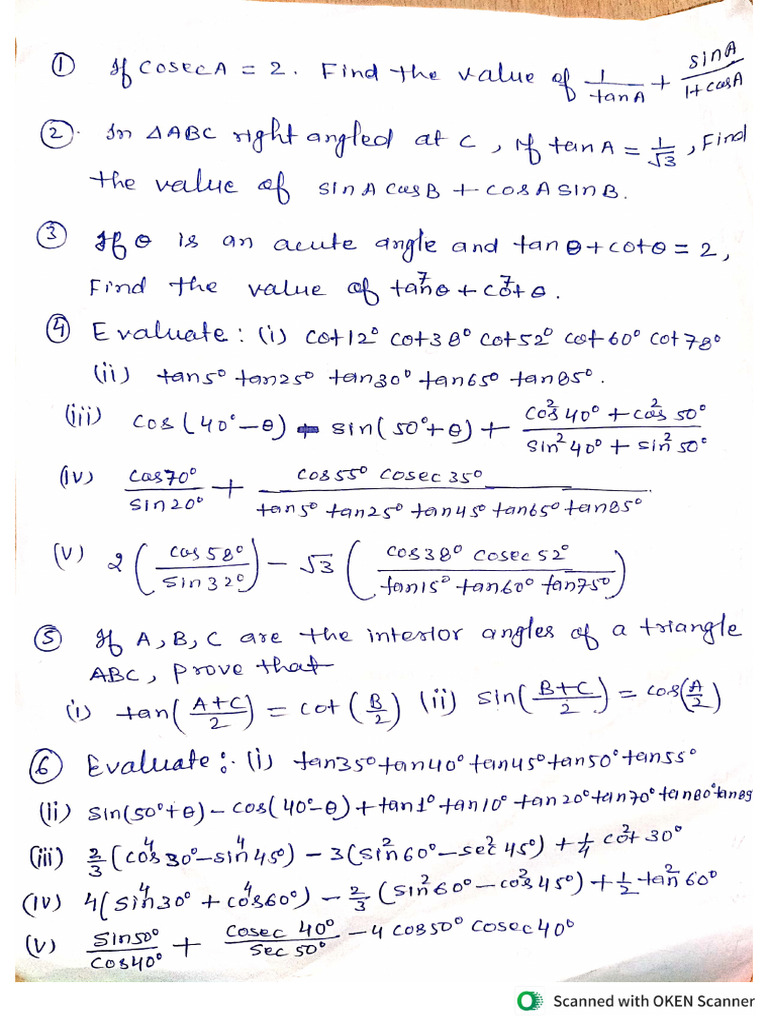 ① If cosecA = 2. Find the value of 1/tanA + sinA/(1+cosA)
②. In ΔABC right angled at C, If tanA = 1/√3, Find
the value of sinA cosB + cosA sinB.
③ If θ is an acute angle and tanθ + cotθ = 2,
Find the value of tan⁷θ + cot⁷θ.
④ Evaluate: (i) cot12° cot38° cot52° cot60° cot78°
(ii) tan5° tan25° tan30° tan65° tan85°.
(iii) cos(40°−θ) − sin(50°+θ) + (cos²40° + cos²50°)/(sin²40° + sin²50°)
(iv) cos70°/sin20° + (cos55° cosec35°)/(tan5° tan25° tan45° tan65° tan85°)
(v) 2(cos58°/sin32°) − √3((cos38° cosec52°)/(tan15° tan60° tan75°))
⑤ If A, B, C are the interior angles of a triangle
ABC, prove that
(i) tan((A+C)/2) = cot(B/2) (ii) sin((B+C)/2) = cos(A/2)
⑥ Evaluate:. (i) tan35° tan40° tan45° tan50° tan55°
(ii) sin(50°+θ) − cos(40°−θ) + tan1° tan10° tan20° tan70° tan80° tan89
(iii) 2/3(cos⁴30° − sin⁴45°) − 3(sin²60° − sec²45°) + 1/4 cot²30°
(iv) 4(sin⁴30° + cos⁴60°) − 2/3(sin²60° − cos²45°) + 1/2 tan²60°
(v) sin50°/cos40° + cosec40°/sec50° − 4cos50° cosec40°
Scanned with OKEN Scanner